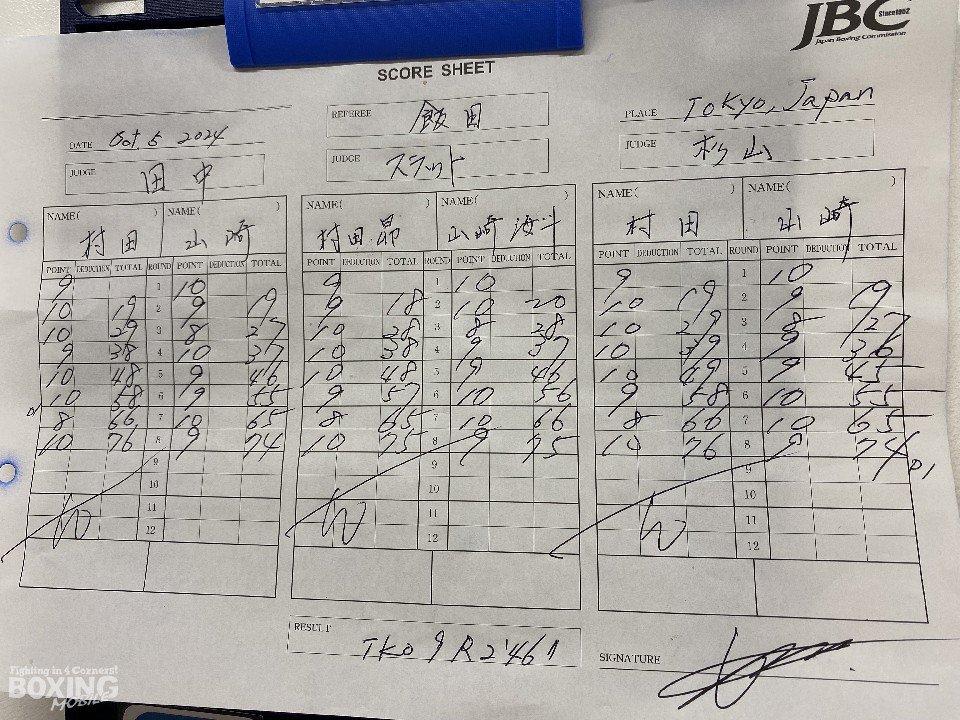 JBC Since1952
Japan Boxing Commission
SCORE SHEET
DATE Oct. 5 2024
REFEREE 飯田
PLACE Tokyo, Japan
JUDGE 田中
JUDGE スラット
JUDGE 杉山
NAME( ) NAME( ) NAME( ) NAME( ) NAME( ) NAME( )
村田 山崎 村田 昴 山崎 海斗 村田 山崎
POINT DEDUCTION TOTAL ROUND POINT DEDUCTION TOTAL POINT DEDUCTION TOTAL ROUND POINT DEDUCTION TOTAL POINT DEDUCTION TOTAL ROUND POINT DEDUCTION TOTAL
9 1 10 9 1 10 9 1 10
10 19 2 9 19 9 18 2 10 20 10 19 2 9 19
10 29 3 8 27 10 28 3 8 28 10 29 3 8 27
9 38 4 10 37 10 38 4 9 37 10 39 4 9 36
10 48 5 9 46 10 48 5 9 46 10 49 5 9 45
10 58 6 9 55 9 57 6 10 56 9 58 6 10 55
8 66 7 10 65 8 65 7 10 66 8 66 7 10 65
10 76 8 9 74 10 75 8 9 75 10 76 8 9 74
9 9 9
10 10 10
11 11 11
W W W
12 12 12
RESULT TKO 9R 2'46"
SIGNATURE
Fighting in 4 Corners!
BOXING
MOBILE